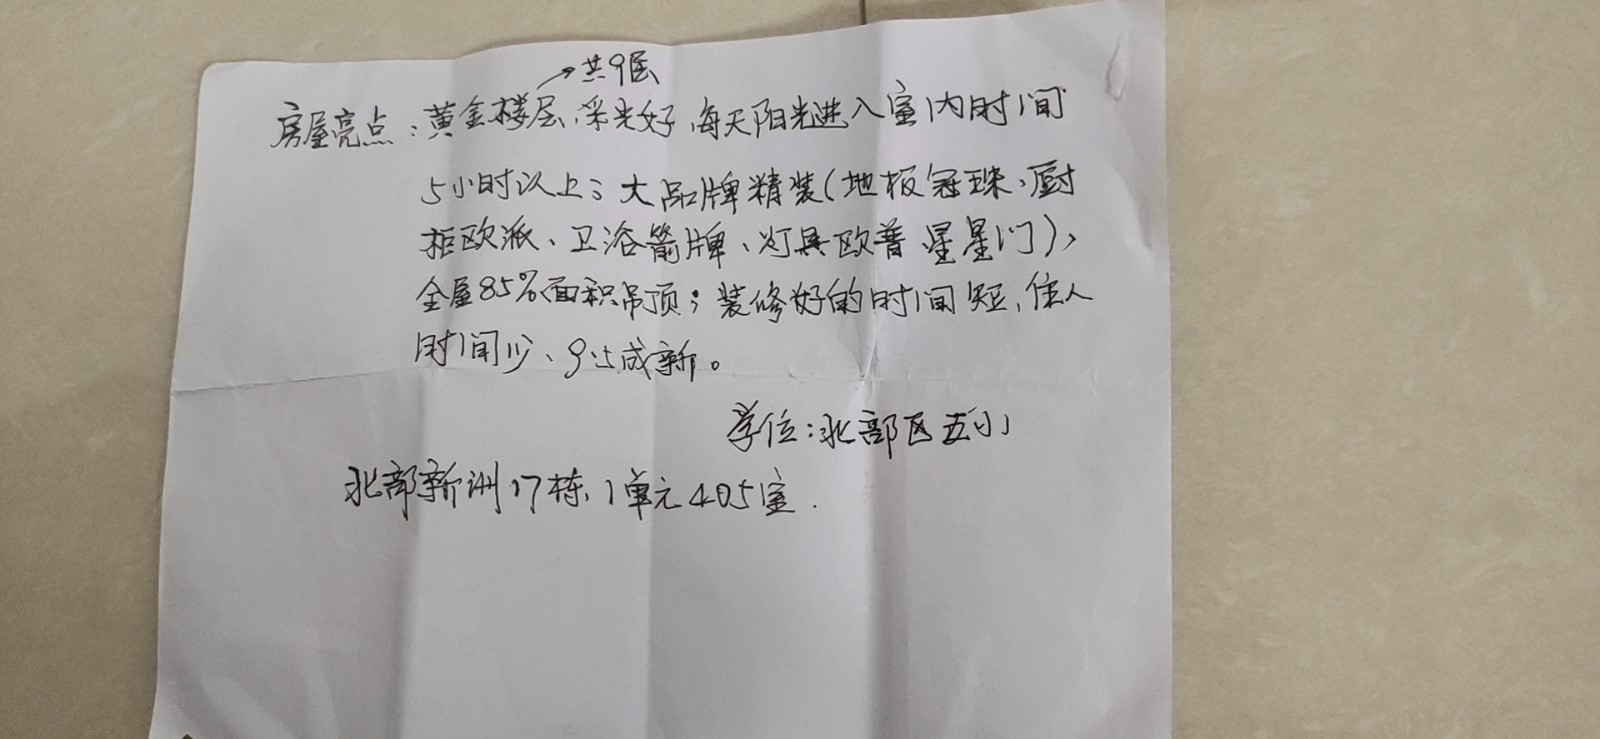 →共9层
房屋亮点：黄金楼层，采光好，每天阳光进入室内时间
5小时以上；大品牌精装(地板冠珠、厨
柜欧派、卫浴箭牌、灯具欧普 星星门)，
全屋85%面积吊顶；装修好的时间短，住人
时间少、9.5成新。
学位：北部区五小
北部新洲17栋，1单元405室.